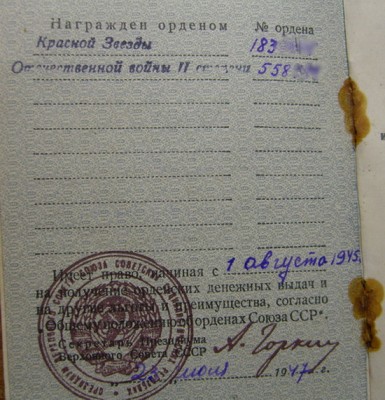 Награжден орденом № ордена
Красной Звезды 183
Отечественной войны II степени 558
Имеет право, начиная с 1 августа 1945г.
на получение орденских денежных выдач и
на другие льготы и преимущества, согласно
Общему положению об орденах Союза ССР".
Секретарь Президиума
Верховного Совета СССР А. Горкин
1947 г.